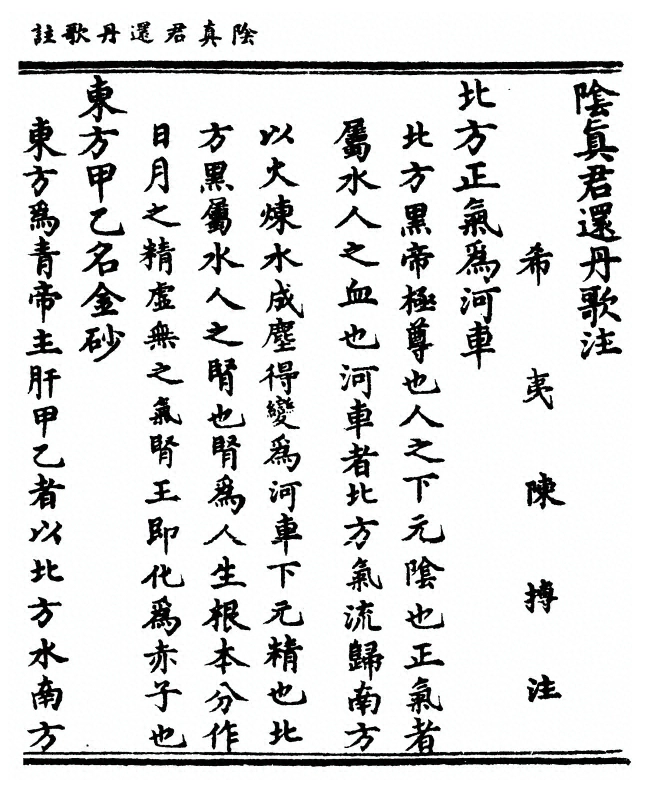 陰真君還丹歌註
陰真君還丹歌注
希夷陳摶注
北方正氣爲河車
北方黑帝極尊也人之下元陰也正氣者
屬水人之血也河車者北方氣流歸南方
以火煉水成塵得變爲河車下元精也北
方黑屬水人之腎也腎爲人生根本分作
日月之精虛無之氣腎王即化爲赤子也
東方甲乙名金砂
東方爲青帝主肝甲乙者以北方水南方